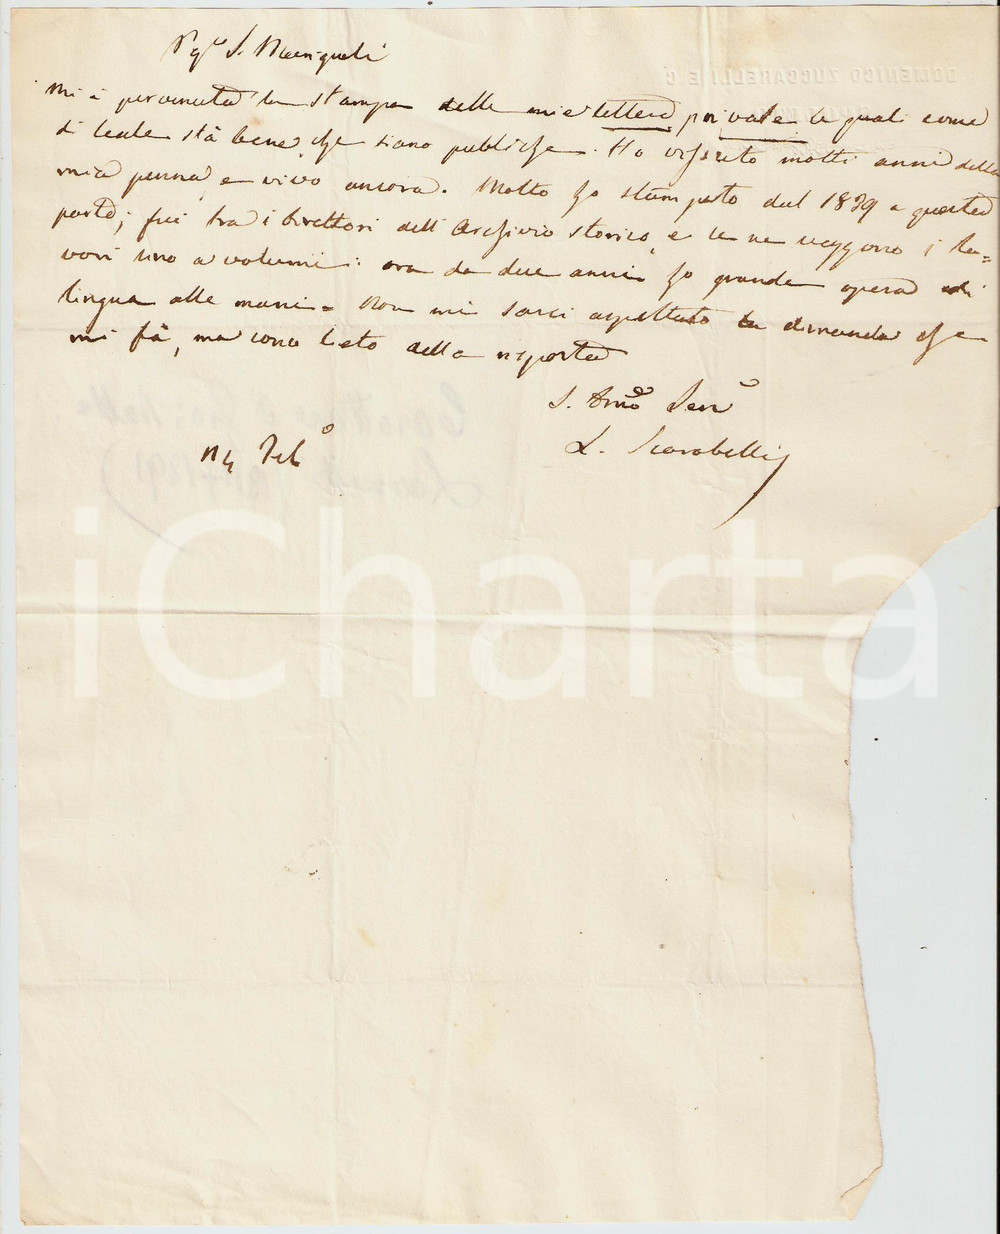 Preg.º S. Meneguli
Mi è pervenuta la stampa delle mie lettere private le quali come
di leale stà bene che siano publiche. Ho vissuto molti anni della
mia penna, e vivo ancora. Molto ho stampato dal 1839 a questa
parte; fui tra i Direttori dell'Archivio storico, e se ne veggono i la=
vori uno a volume: ora da due anni ho grande opera di
lingua alle mani. Non mi sarei aspettato la dimanda che
mi fà, ma sono lieto della risposta
S. Dmo Serv
L. Scarabelli
14 Feb.º
DOMENICO ZUCCARELLI E C
iCharta